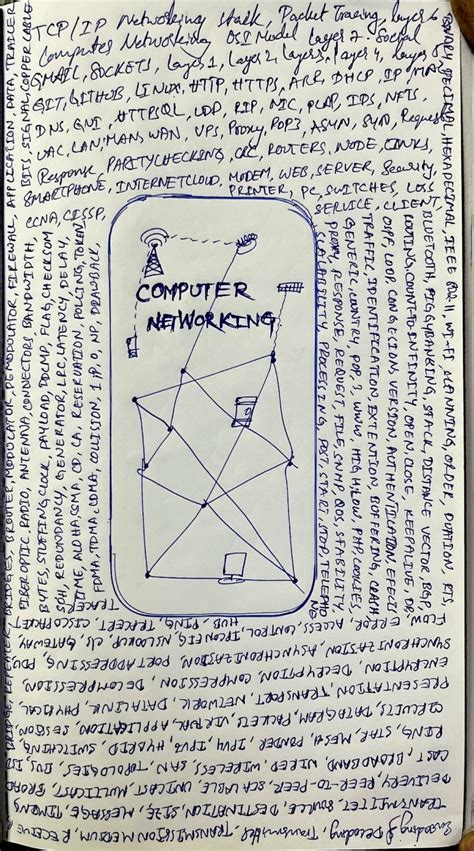 TCP/IP Networking Stack, Packet Tracing, Layer 6
Computer Networking OSI Model Layer 7. Social
GMAIL, SOCKETS, Layer 1, Layer 2, Layer 3, Layer 4, Layer 5
GIT, GITHUB, LINUX, HTTP, HTTPS, ARP, DHCP, IP, MAC
DNS, GNI, HTTPSQL, UDP, RIP, NIC, IDS, NFTS,
VAC, LAN, MAN, WAN, VPS, Proxy, POP3, ASYN, SYN, Request
Response, PARITY CHECKING, CRC, ROUTERS, NODE, LINKS,
SMARTPHONE, INTERNET CLOUD, MODEM, WEB, SERVER, Security,
PRINTER, PC, SWITCHES, LOSS
SERVICE, CLIENT,
COMPUTER
NETWORKING
BITS, SIGNAL, COPPER CABLE
BRIDGES, ROUTER, MODULATOR, DEMODULATOR, FIREWALL, APPLICATION DATA, TRAILER
FIBER OPTIC, RADIO, ANTENNA, CONNECTORS BANDWIDTH,
BYTES, STUFFING, CLOCK, PAYLOAD, DDCMP, FLAG, CHECKSUM
SOH, REDUNDANCY, GENERATOR, LRC, LATENCY, DELAY,
TIME, ALOHA, CSMA, CD, CA, RESERVATION, POLLING, TOKEN,
FDMA, TDMA, CDMA, COLLISION, 1, P, O, NP, DRAWBACK,
CCNA, CISSP,
BINARY, DECIMAL, HEXADECIMAL, IEEE 802.11, WI-FI, SCANNING, ORDER, DURATION, RTS,
BLUETOOTH, PIGGYBANKING, STACK, DISTANCE VECTOR, BGP,
ROUTING, COUNT-TO-INFINITY, OPEN, CLOSE, KEEPALIVE, DR
OSPF, LOOP, CONGESTION, VERSION, AUTHENTICATION,
TRAFFIC, IDENTIFICATION, EXTENTION, BUFFERING,
GENERIC, COUNTRY, POP3, WWW, HIGH, LOW, PHP, COOKIES,
PROXY, RESPONSE, REQUEST, FILE, SNMP, QOS, STABILITY,
SCALABILITY, PROCESSING, POST, START, STOP,
FLOW, ERROR, ACCESS, CONTROL, IPCONFIG, NSLOOKUP, GATEWAY,
HUB, PING, TRACERT, CISCO PACKET
TRACER
SYNCHRONIZATION, ASYNCHRONISATION, PORT ADDRESSING, PDU,
ENCRYPTION, DECRYPTION, COMPRESSION, DECOMPRESSION,
PRESENTATION, TRANSPORT, NETWORK, DATALINK, PHYSICAL,
CIRCUITS, DATAGRAM, PACKET, VIRTUAL, APPLICATION, SESSION,
RING, STAR, MESH, IPV4, IPV6, HYBRID, SWITCHING,
CAST, BROADBAND, WIRED, WIRELESS, SAN, TOPOLOGIES, BUS,
DELIVERY, PEER-TO-PEER, SCALABLE, UNICAST, MULTICAST, BROAD
TRANSMITTER, SOURCE, DESTINATION, SIZE, MESSAGE, TIMING
Encoding, Decoding, Transmitted, TRANSMISSION MEDIUM, RECEIVE